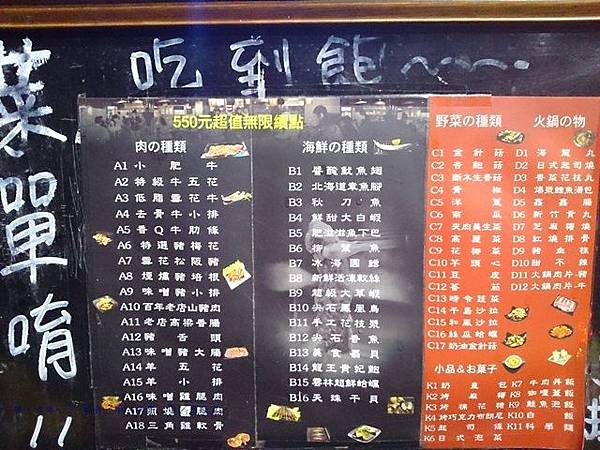 吃到飽~~~
菜單唷
!!
550元超值無限續點
肉の種類
A1 小肥牛
A2 特級牛五花
A3 低脂雪花牛
A4 去骨牛小排
A5 香Q牛肋條
A6 特選豬梅花
A7 雪花松阪豬
A8 煙燻豬培根
A9 味噌豬小排
A10 百年老店山豬肉
A11 老店高梁香腸
A12 豬舌頭
A13 味噌豬大腸
A14 羊五花
A15 羊小排
A16 味噌雞腿肉
A17 照燒雞腿肉
A18 三角雞軟骨
海鮮の種類
B1 醬酸魷魚翅
B2 北海道章魚腳
B3 秋刀魚
B4 鮮甜大白蝦
B5 肥滋滋魚下巴
B6 柳葉魚
B7 冰海圓鱈
B8 新鮮活凍軟絲
B9 超級大草蝦
B10 尖石鳳凰鳥
B11 手工花枝漿
B12 尖石香魚
B13 美食扇貝
B14 龍王貴妃鮑
B15 雲林超鮮蛤蠣
B16 天珠干貝
野菜の種類
C1 金針菇
C2 杏鮑菇
C3 斷木生香菇
C4 青椒
C5 洋蔥
C6 南瓜
C7 夾肉美生菜
C8 高麗菜
C9 花椰菜
C10 芋頭心
C11 豆皮
C12 蕃茄
C13 時令蔬菜
C14 千島沙拉
C15 和風沙拉
C16 絲瓜蛤蠣
C17 奶油金針菇
火鍋の物
D1 海龍丸
D2 日式起司燒
D3 香菜花枝丸
D4 爆漿鱈魚湯包
D5 鑫鑫腸
D6 新竹貢丸
D7 芝麻糬燒
D8 紅燒排骨
D9 豬血糕
D10 甜不辣
D11 火鍋肉片-豬
D12 火鍋肉片-牛
小品&お菓子
K1 奶皇包
K2 烤麻糬
K3 烤棉花糖
K4 烤巧克力布朗尼
K5 起司條
K6 日式泡菜
K7 牛肉丼飯
K8 咖哩蓋飯
K9 鮭魚泡飯
K10 白飯
K11 科學麵